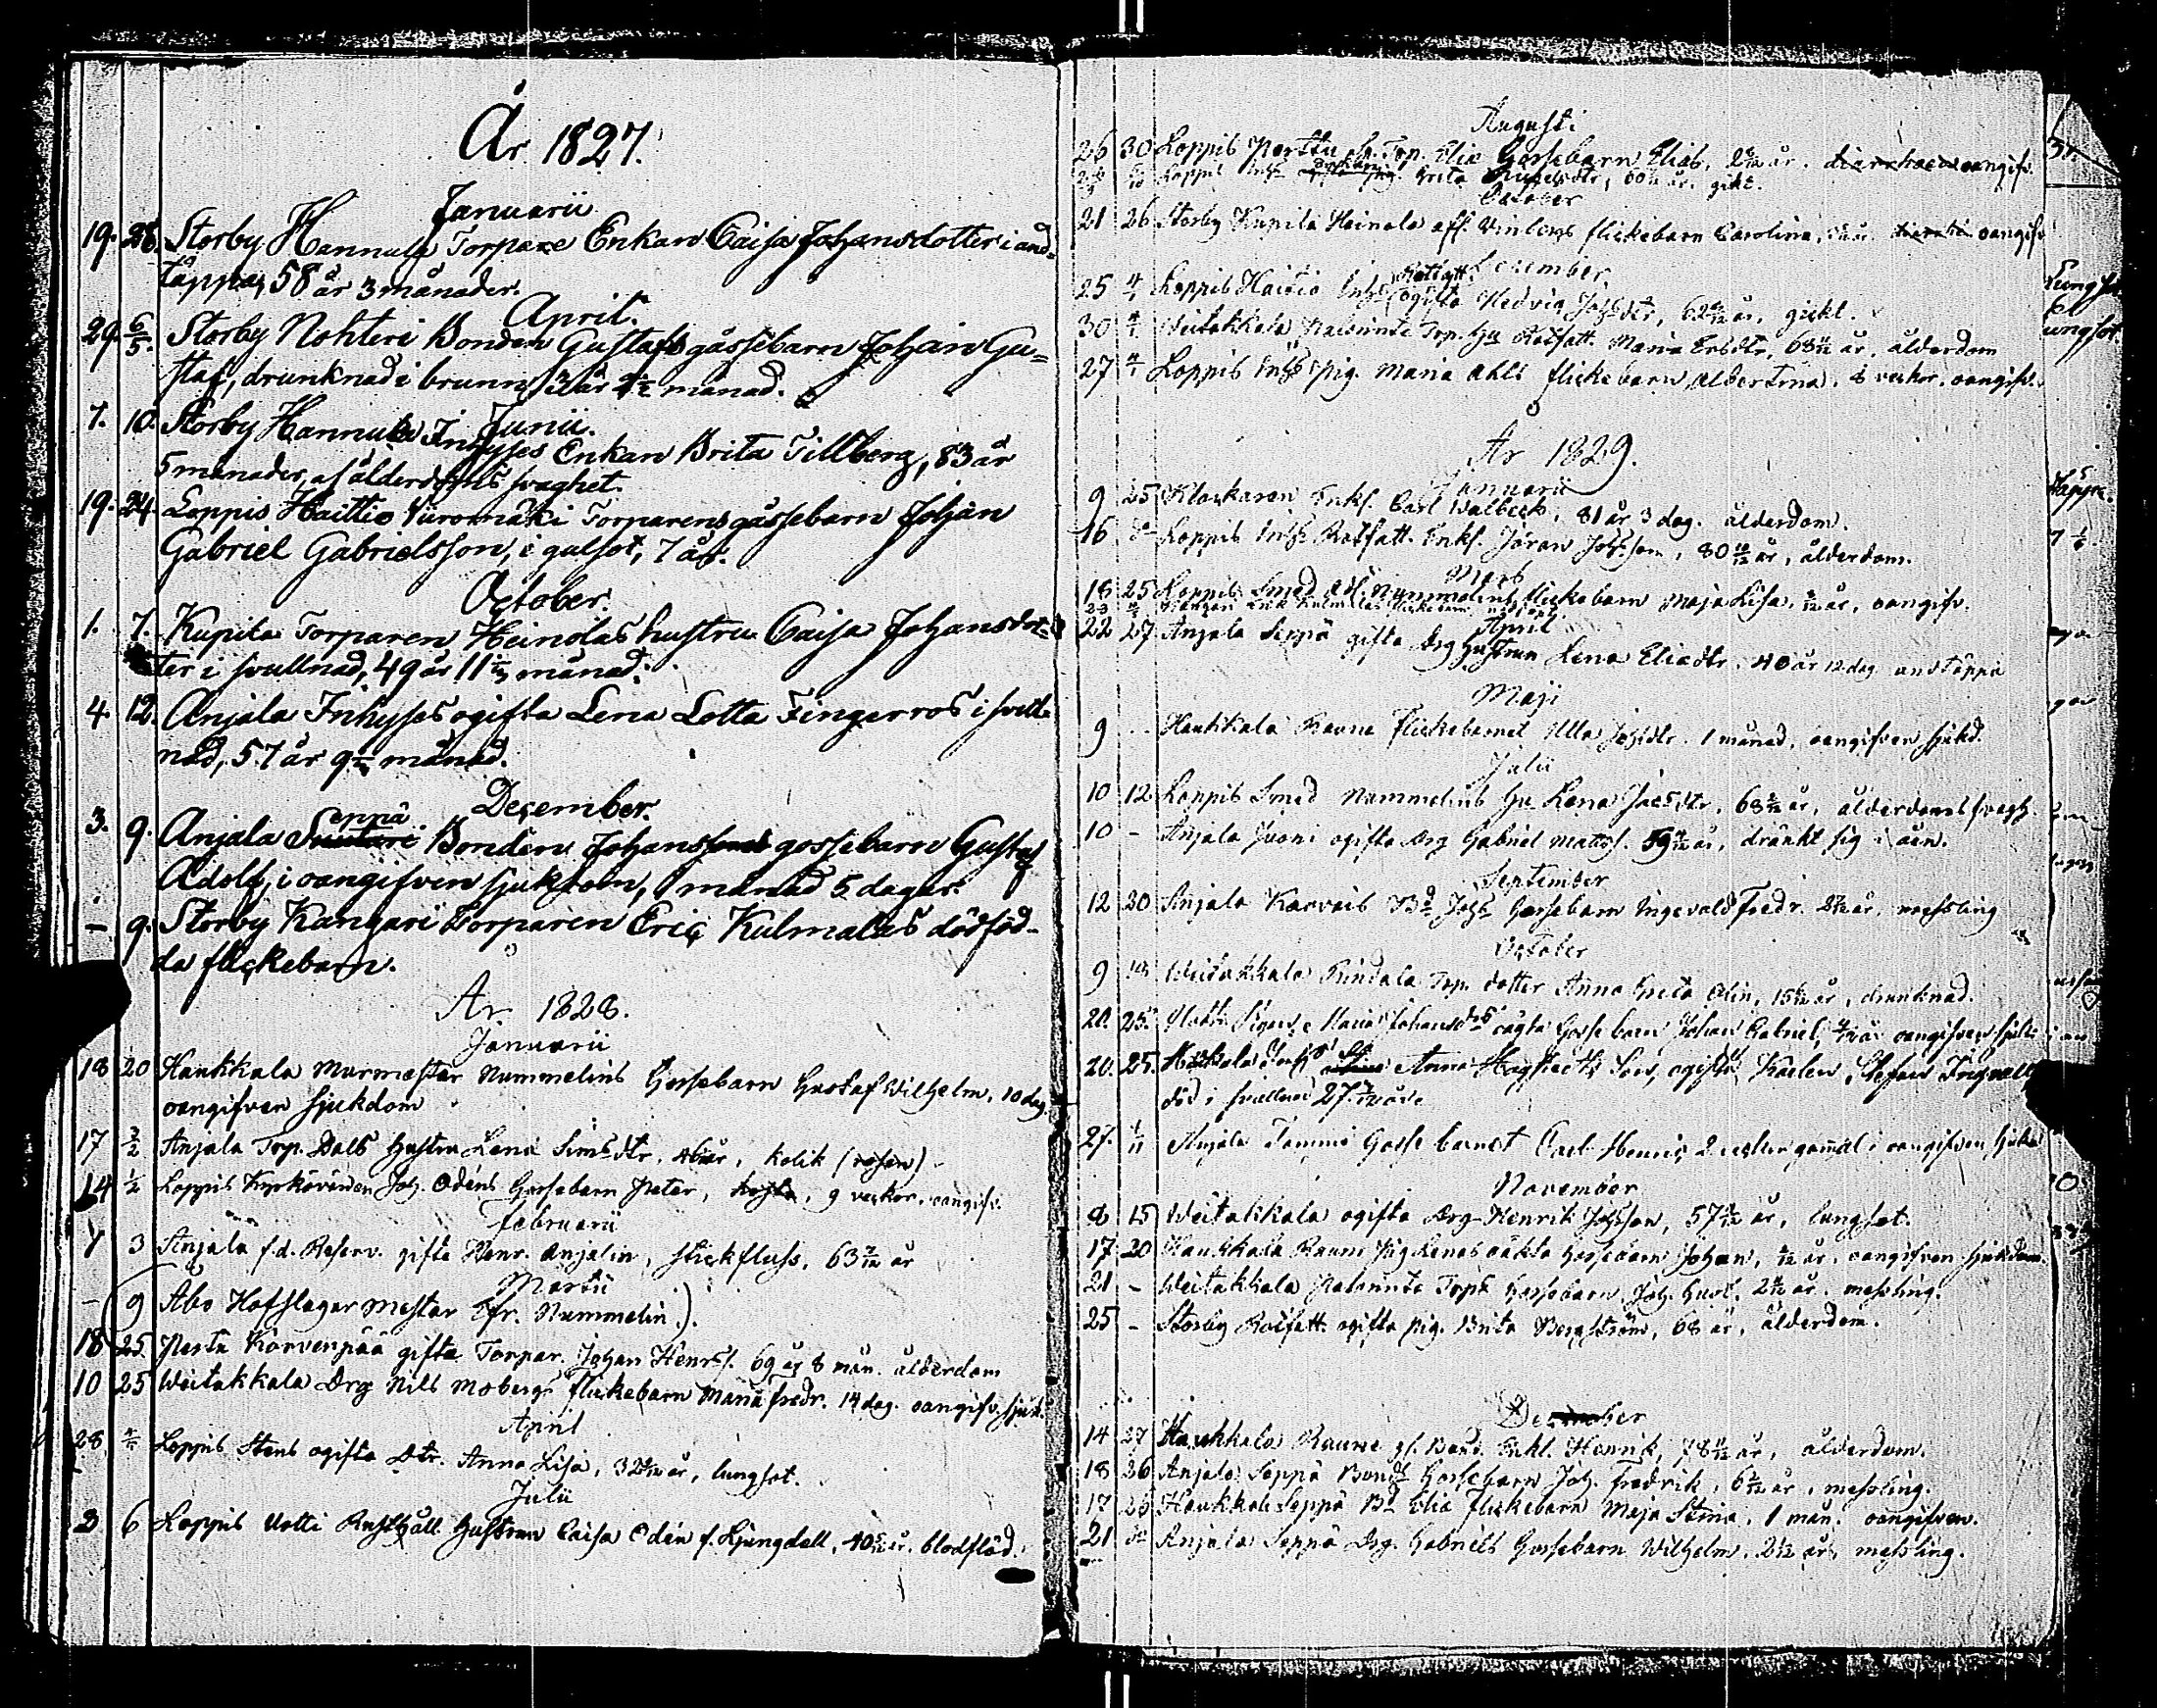 År 1827.
Januarii
19. 28. Storby Hannula Torpare Enkan Caisa Johansdotter i and=
täppa, 58 år 3 månader.
April.
29. 6/5. Storby Nohteri Bonden Gustafs gåssebarn Johan Gu=
staf, drunknad i brunn, 3 år månad.
Junii.
7. 10. Storby Hannula Inhyses Enkan Brita Tillberg, 83 år
5 månader, af ålderdoms svaghet.
19. 24. Loppis Haittio Torparens gåssebarn Johan
Gabriel Gabrielsson, i gulsot, 7 år.
October.
1. 7. Kupila Torparen Heinolas hustru Caisa Johansdot=
ter i svullnad, 49 år 11 månad.
4. 12. Anjala Inhyses ogifta Lena Lotta Fingerroos i svull=
nad, 57 år 9 månad.
December.
3. 9. Anjala Seppä Bonden Johans gossebarn Gustaf
Adolf, i oangifven sjukdom, 1 månad 5 dagar.
– 9. Storby Kangari Torparen Eric Kulmalas dödföd-
da flickebarn.
År 1828.
Januarii
18 20 Haukkala Murmästar Nummelins Gossebarn Gustaf Wilhelm, 10 dag.
oangifven sjukdom
17 3/2 Anjala Torp. Dals hustru Lena Simsdtr, kolik (rosen)
14 1/2 Loppis Kyrkovärden Joh. Odéns Gossebarn Peter, 9 veckor, oangifv.
Februarii
3 Anjala f.d. Reserv. gifta Henr. Anjalin, stickfluss, 63 år
Martii
– (9 Åbo Hofslagar mästar Efr. Nummelin.)
18 25. Perta Korvenpää gifta Torpar. Johan Henrss. 69 år 8 mån. ålderdom
10 25 Weitakkala Drg Nils Mobergs flickebarn Maria fredr. 14 dag. oangifv. sjuk.
April
28 Loppis Stens ogifta Dtr. Anna Lisa, 32 år, lungsot.
Julii
3 6 Loppis Uotti Rusthåll. Hustrun Caisa Odén f. Ljungdell, 40 år. blodflöd.
Augusti
26 30 Loppis Perttu Torp. Elia Gossebarn Elias, 2 år. oangifv.
Loppis Inhs Greta 60 år. gikt.
October
21 26 Storby Kupila Heinola flickebarn Carolina, oangifv
December
25 Loppis Haitio Inhs ogifta Hedvig Johsdtr, 62 år, gickt.
30 Weitakkala Torp. Hu Rotfatt. Maria Ersdtr, 63 år, ålderdom
27 Loppis Inhs pig. Maria Ahls flickebarn Albertina, 8 veckor, oangifv.
År 1829.
Januarii
9 25 Klockaren Enkl. Carl Walbeck, 81 år 3 dag. ålderdom.
16 do Loppis Inhs Rotfatt. Enkl. Jöran Johsson, 80 10/12 år, ålderdom.
Mars
18 25 Loppis Smed Ad. Nummelins flickebarn Maja Lisa, år, oangifv.
Kangari Erik Kulmalas flickebarn
April
22 27 Anjala Seppä gifta Drg hustrun Lena Eliædtr, 40 år 12 dag. andtäppa
Maji
9 Haukkala Rauna flickebarnet Ulla Johsdtr. 1 månad, oangifven sjukd.
Julii
10 12 Loppis Smed Nummelins Hu Lena Jacsdtr, 63 år, ålderdoms svagh.
10 – Anjala Juoni ogifta Drg Gabriel Mattss. 59 år, dränkt sig i åen.
September
12 20 Anjala Karvais Bd Johs Gossebarn Ingevald Fredr. 2 år, messling
October
9 Weitakkala Torp. dotter Anna Greta Olin, 15 år, drunknad.
20. 25. Maria Johansdrs oägta Gosse barn Johan Gabriel, år oangifven sjuk
20. 25. Anna Son, ogifta Karlen Stefan
död i svullnad 27 år.
27. 1/11 Anjala Tammi Gosse barnet Carl Henric, 2 veckor gammal i oangifven sjuk
November
8 15 Weitakkala ogifta Drg Henrik Johsson, 57 år, lungsot.
17 20 Haukkala Rauni Pig Lenas oäkta Gossebarn Johan, år, oangifven sjukdom.
21 – Weitakkala Torps Gossebarn Joh. Gust. 2 år, messling.
25 – Storby Rotfatt. ogifta Pig. Brita Bergström, 68 år, ålderdom.
December
14 27 Haukkala Raune gl. Bond. Enkl. Henrik, 78 år, ålderdom.
18 26 Anjala Seppä Bonds Gossebarn Joh. Fredrik, 6 år, messling.
17 26 Haukkala Seppä Bd Elia flickebarn Maja Stina, 1 mån. oangifven.
21 do Anjala Seppä Drg. Gabriels Gossebarn Wilhelm, 2 år, messling.